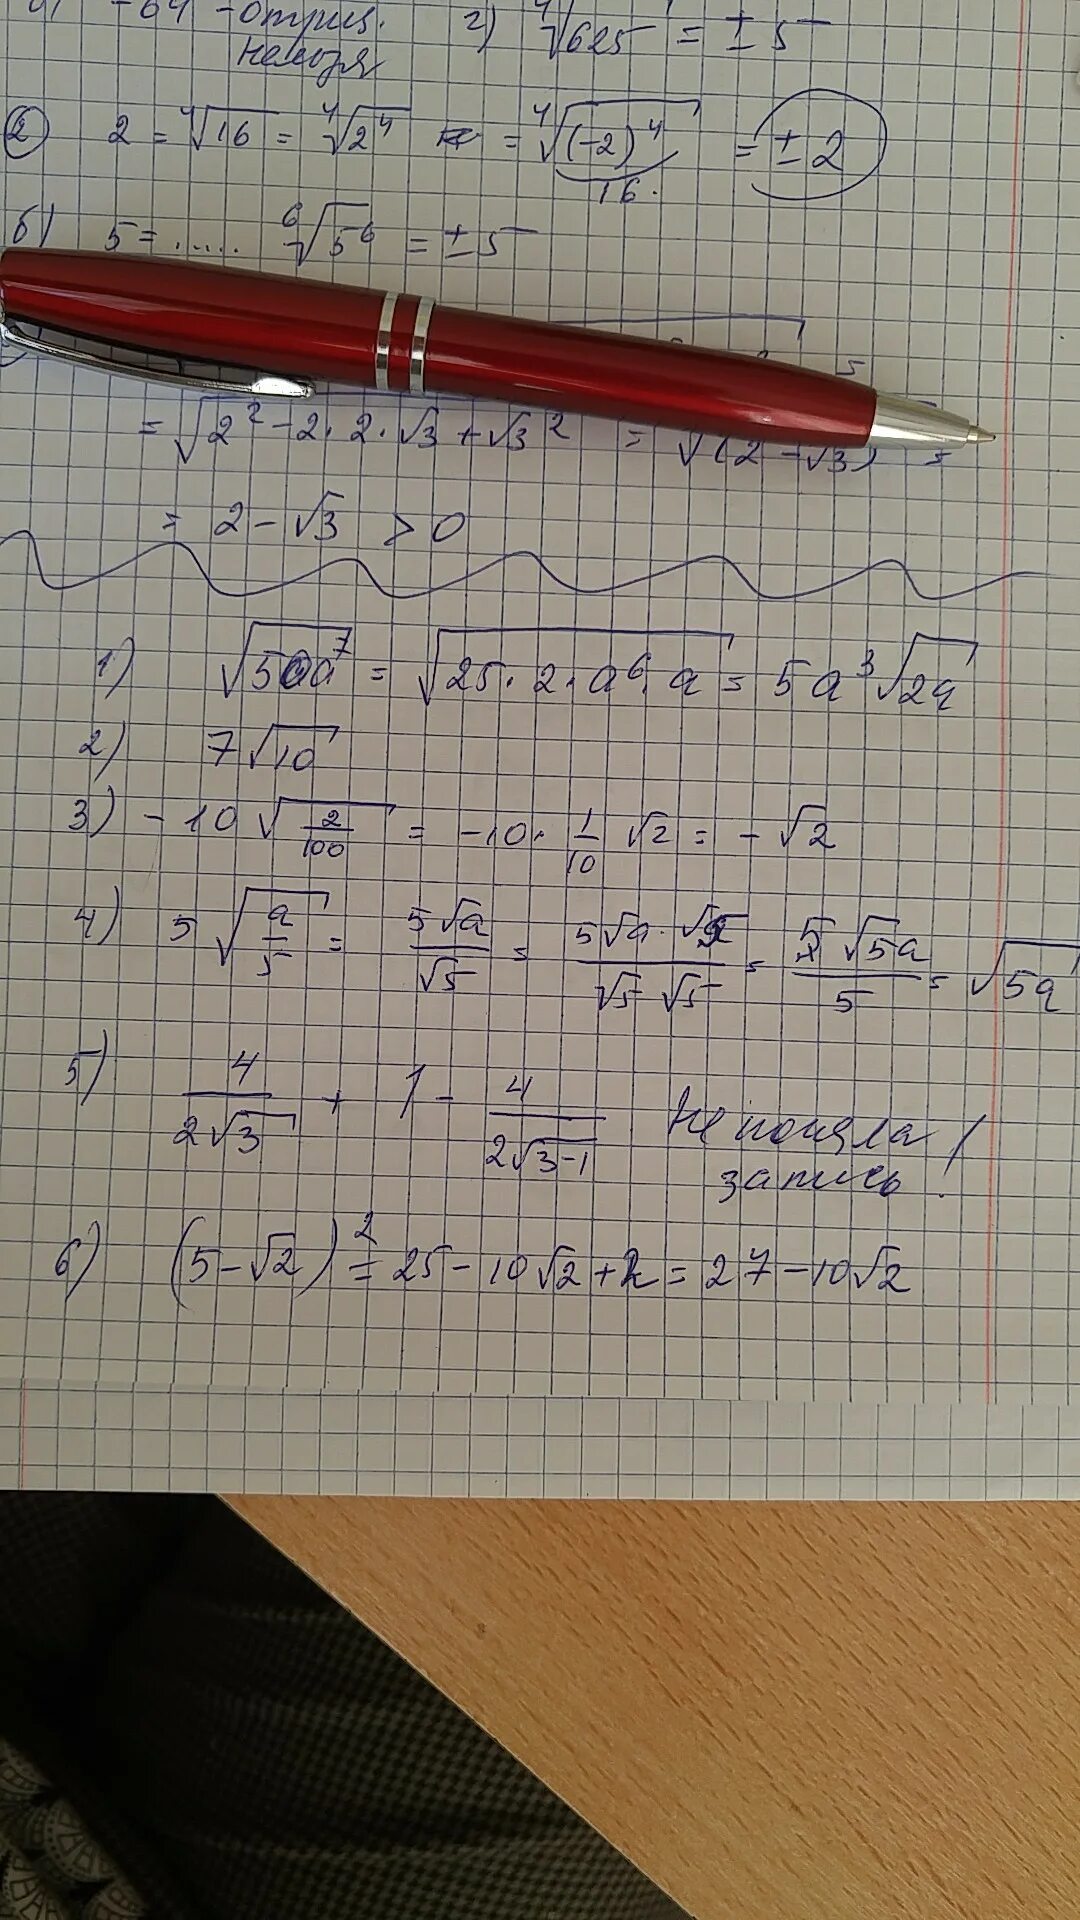 -64 - отриц. г) ⁴√625 = ± 5
нельзя
② 2 = ⁴√16 = ⁴√2⁴ = ⁴√(-2)⁴ = ± 2
16.
б) 5 = ..... ⁶√5⁶ = ± 5
= √2² - 2 · 2 · √3 + √3² = √(2 - √3)
= 2 - √3 > 0
1) √50a⁷ = √25 · 2 · a⁶ · a = 5a³√2a
2) 7√10
3) - 10 √2/100 = -10 · 1/10 √2 = - √2
4) 5 √a/5 = 5√a/√5 = 5√a · √5/√5 √5 = 5 √5a/5 = √5a
5) 4/2√3 + 1 - 4/2√3-1 Не поняла
запись!
6) (5 - √2)² = 25 - 10√2 + 2 = 27 - 10√2